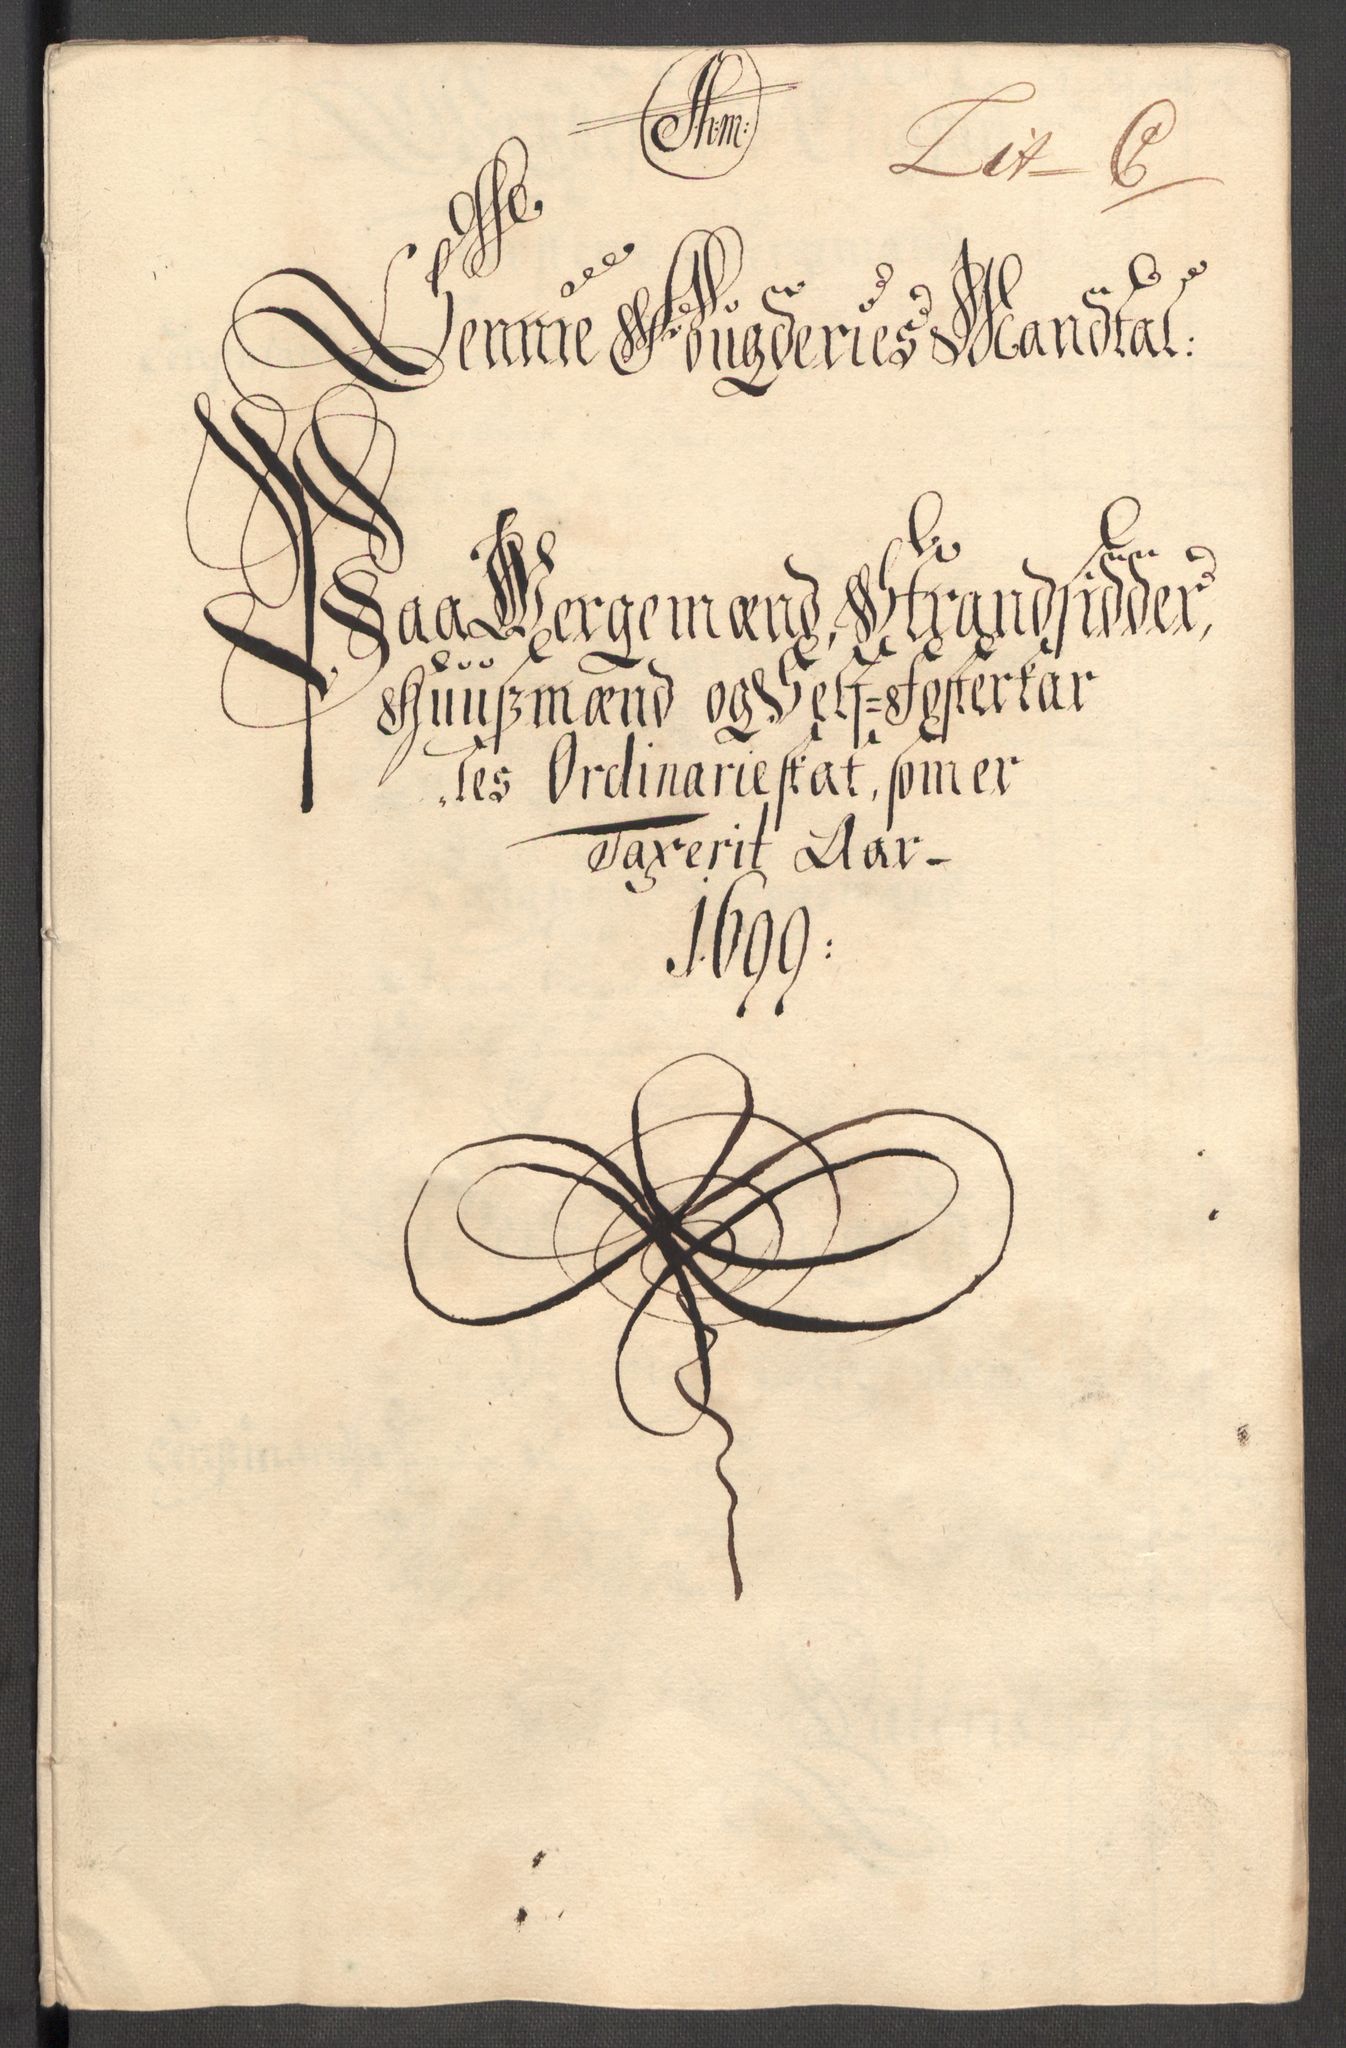 Lit C
Lennie Fougderies Mandtal:
Paa Vergemænd, Strandsidder,
Huusmænd og Self-Fosterkar
les Ordinarieskat, som er
Taxerit Aar
1699: